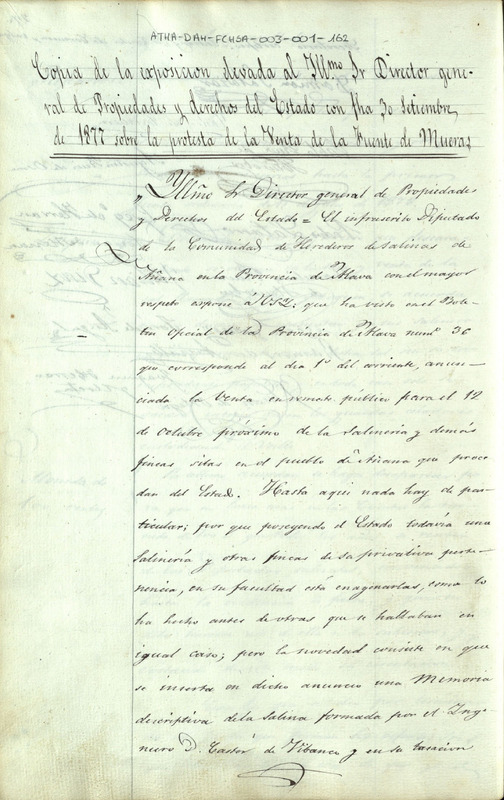 ATHA-DAH-FCHSA-003-001-162
Copia de la exposicion elevada al Yllmo Sr Director gene-
ral de Propiedades y derechos del Estado con fha 30 Setiembre
de 1877 sobre la protesta de la Venta de la Fuente de Muera
"Yllmo Sr Director general de Propiedades
y Derechos del Estado = El infrascrito Diputado
de la Comunidad de Herederos de Salinas de
Añana en la Provincia de Alava con el mayor
respeto expone á VSI: que ha visto en el Bole-
tin Oficial de la Provincia de Alava numº 36
que corresponde al dia 1º del corriente, anun-
ciada la Venta en remate público para el 12
de octubre próximo de la Salineria y demás
fincas sitas en el pueblo de Añana que proce-
dan del Estado. Hasta aqui nada hay de par-
ticular; por que poseyendo el Estado todavia una
Salinería y otras fincas de su privativa perte-
nencia, en su facultad está enagenarlas, como lo
ha hecho antes de otras que se hallaban en
igual caso; pero la novedad consiste en que
se inserta en dicho anuncio una Memoria
descriptiva de la Salina formada por el Inge-
niero D. Castor de Vibanco y en su tasacion